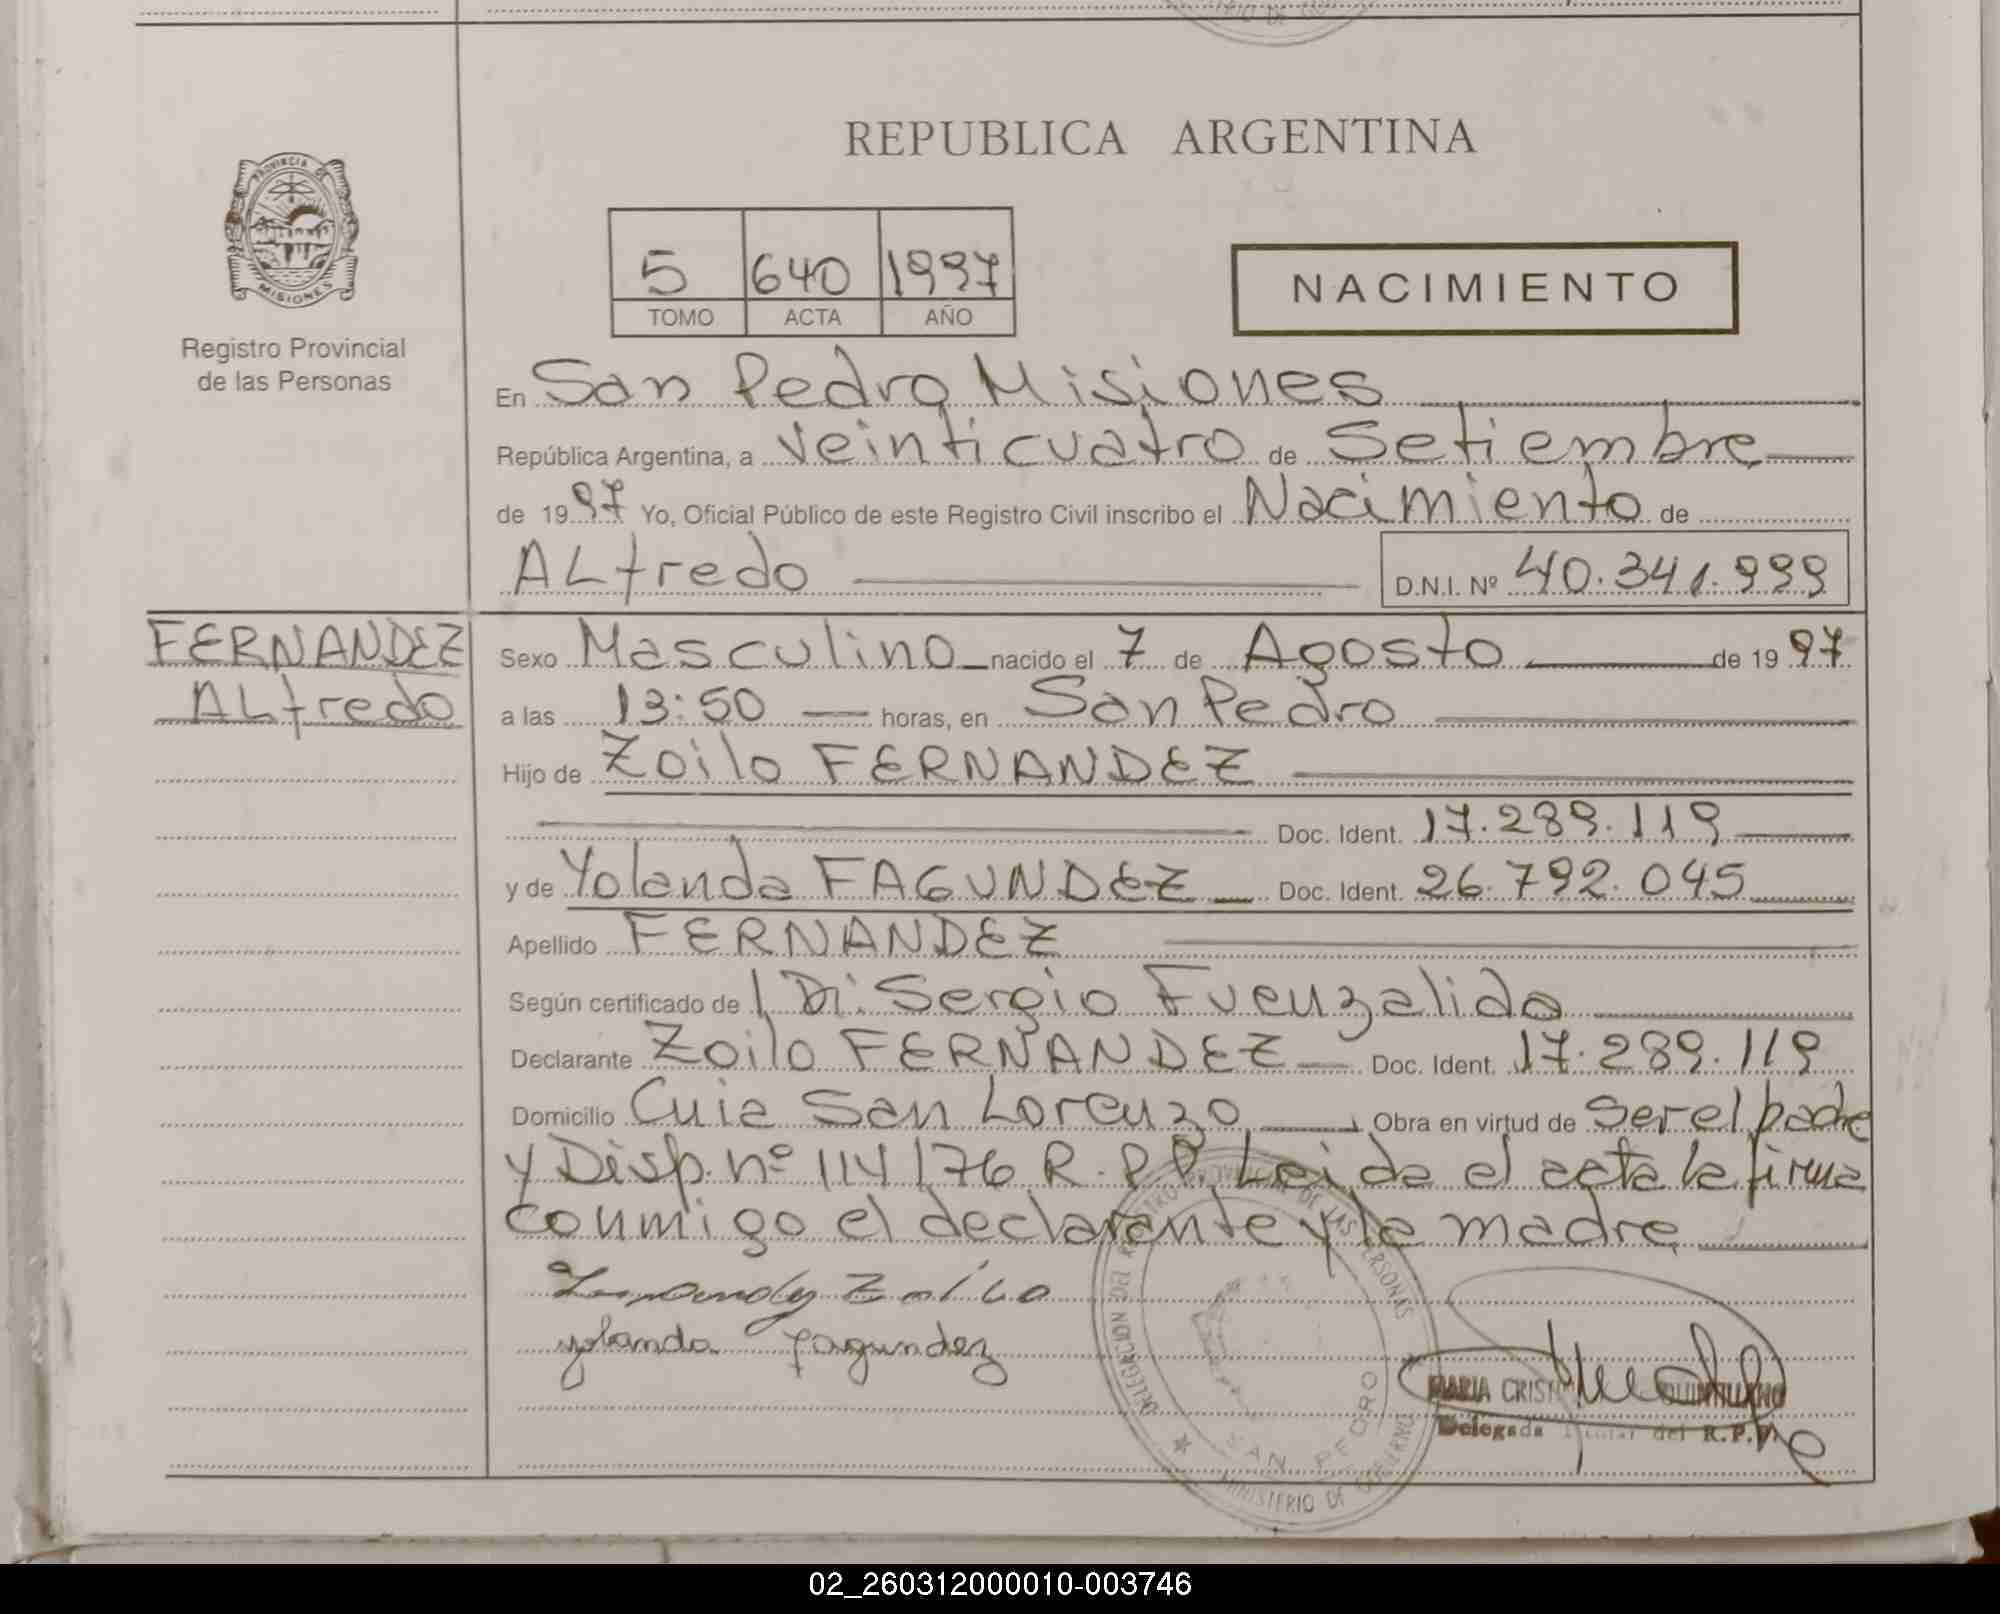 REPUBLICA ARGENTINA
PROVINCIA DE
MISIONES
Registro Provincial
de las Personas
5 640 1997
TOMO ACTA AÑO
NACIMIENTO
En San Pedro Misiones
República Argentina, a veinticuatro de Setiembre
de 1997 Yo, Oficial Público de este Registro Civil inscribo el Nacimiento de
ALfredo D.N.I. Nº 40.341.999
FERNANDEZ
ALfredo
Sexo Masculino nacido el 7 de Agosto de 1997
a las 13:50 horas, en San Pedro
Hijo de Zoilo FERNANDEZ
Doc. Ident. 17.289.119
y de Yolanda FAGUNDEZ Doc. Ident. 26.792.045
Apellido FERNANDEZ
Según certificado de Sergio Fuenzalida
Declarante Zoilo FERNANDEZ Doc. Ident. 17.289.119
Domicilio Cuia San Lorenzo Obra en virtud de ser el padre
y Disp. nº 114/76 R.P.P. Leida el acta la firma
conmigo el declarante y la madre
Zoilo
yolanda fagundez
DELEGACION DEL REGISTRO PROVINCIAL DE LAS PERSONAS
SAN PEDRO
MINISTERIO DE GOBIERNO
MARIA CRISTINA QUINTILLANO
Delegada Titular del R.P.P.
02_260312000010-003746